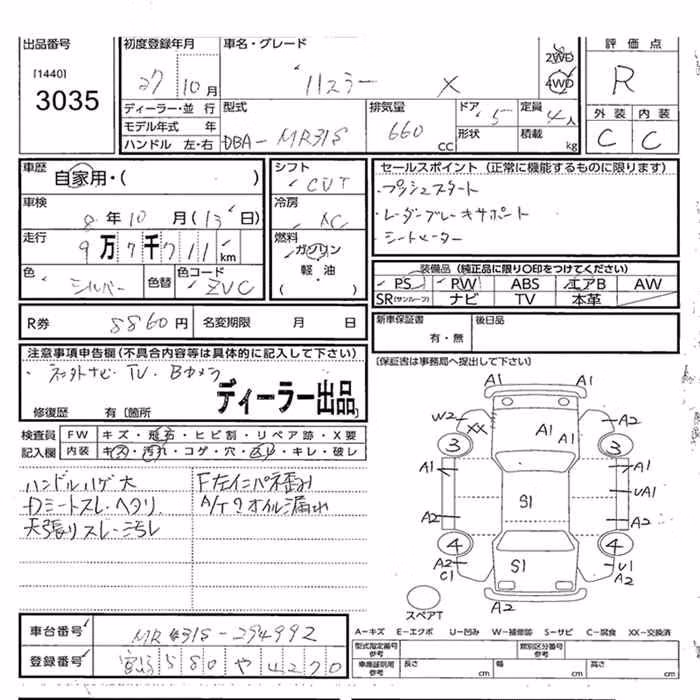 出品番号
[1440]
3035
初度登録年月
27 10月
車名・グレード
ハスラー X
2WD
4WD
評価点
R
外装 内装
C C
ディーラー・並行
モデル年式 年
ハンドル 左・右
型式
DBA-MR31S
排気量
660 CC
ドア 5
形状
定員 4人
積載 kg
車歴
自家用・( )
車検
8年10月(13日)
走行
9万7千711km
色
シルバー
色替
色コード
ZVC
シフト
CVT
冷房
AC
燃料
ガソリン
軽・油
( )
セールスポイント(正常に機能するものに限ります)
・プッシュスタート
・レーダーブレーキサポート
・シートヒーター
装備品(純正品に限り○印をつけてください)
PS PW ABS エアB AW
SR(サンルーフ) ナビ TV 本革
R券 8860円
名変期限 月 日
新車保証書
有・無
後日品
[保証書は事務局へ提出して下さい]
注意事項申告欄(不具合内容等は具体的に記入して下さい)
・社外ナビ・TV・Bカメラ
ディーラー出品
修復歴 有[箇所
検査員
記入欄
FW キズ・飛石・ヒビ割・リペア跡・X要
内装 キズ・汚れ・コゲ・穴・ヌレ・キレ・破レ
ハンドルハゲ大
Dシートスレ・ヘタリ
天張りスレ・汚れ
F左インパネ歪み
A/Tのオイル漏れ
A1 A1
W2 XX A1 A2
3 A1 3
A1 A1
S1 UA1
A2 A2
4 4
A2 C1 S1 U1 A2
A2
スペアT
車台番号
MR31S-294992
登録番号
宮崎580や4270
A-キズ E-エクボ U-凹み W-補修跡 S-サビ C-腐食 XX-交換済
型式指定番号
参考
類別区分番号
参考
車庫証明用
参考
長さ cm
幅 cm
高さ cm